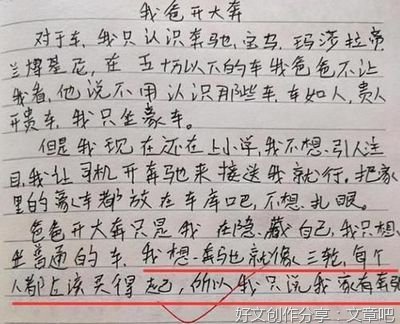 我爸开大奔
对于车,我只认识奔驰,宝马,玛莎拉蒂
兰博基尼,在五十万以下的车我爸爸不让
我看,他说不用认识那些车,车如人,贵人
开贵车,我只坐豪车。
但是我现在还在上小学,我不想引人注
目,我让司机开奔驰来接送我就行。把家
里的豪车都放在车库吧,不想扎眼。
爸爸开大奔只是我在隐藏自己,我只想
坐普通的车,我想奔驰就像三轮,每个
人都应该买得起,所以我只说我家有奔驰
好文创作分享:文章吧